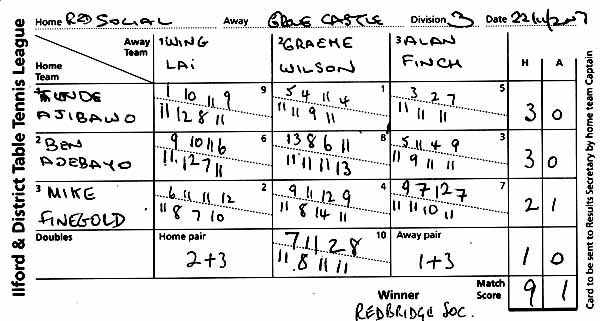 Ilford & District Table Tennis League
Home RED SOCIAL Away EAGLE CASTLE Division 3 Date 22/11/2007
Away Team 1 WING LAI 2 GRAEME WILSON 3 ALAN FINCH H A
Home Team
1 TUNDE AJIBAWO 9 1 5 3 0
1 10 11 9 5 4 11 4 3 2 7
11 12 8 11 11 11 9 11 11 11 11
2 BEN ADEBAYO 6 8 3 3 0
9 10 11 6 13 8 6 11 5 11 4 9
11 12 7 11 11 11 11 13 11 9 11 11
3 MIKE FINEGOLD 2 4 7 2 1
6 11 11 12 9 11 12 9 9 7 12 7
11 8 7 10 11 8 14 11 11 11 10 11
Doubles Home pair 10 Away pair
2+3 7 11 2 8 1+3 1 0
11 8 11 11
Match Score 9 1
Winner
REDBRIDGE SOC.
Card to be sent to Results Secretary by home team Captain